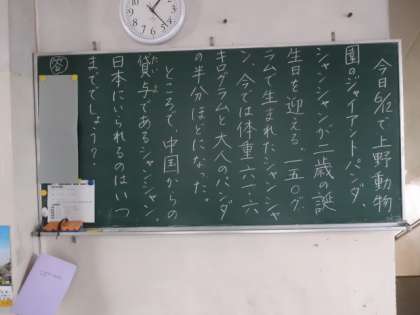 今日6/12で上野動物
園のジャイアントパンダ、
シャンシャンが二歳の誕
生日を迎える。一五〇グ
ラムで生まれたシャンシャ
ン、今では体重六一・六
キログラムと大人のパンダ
の半分ほどになった。
ところで、中国からの
貸与であるシャンシャン、
たいよ
日本にいられるのはいつ
まででしょう？